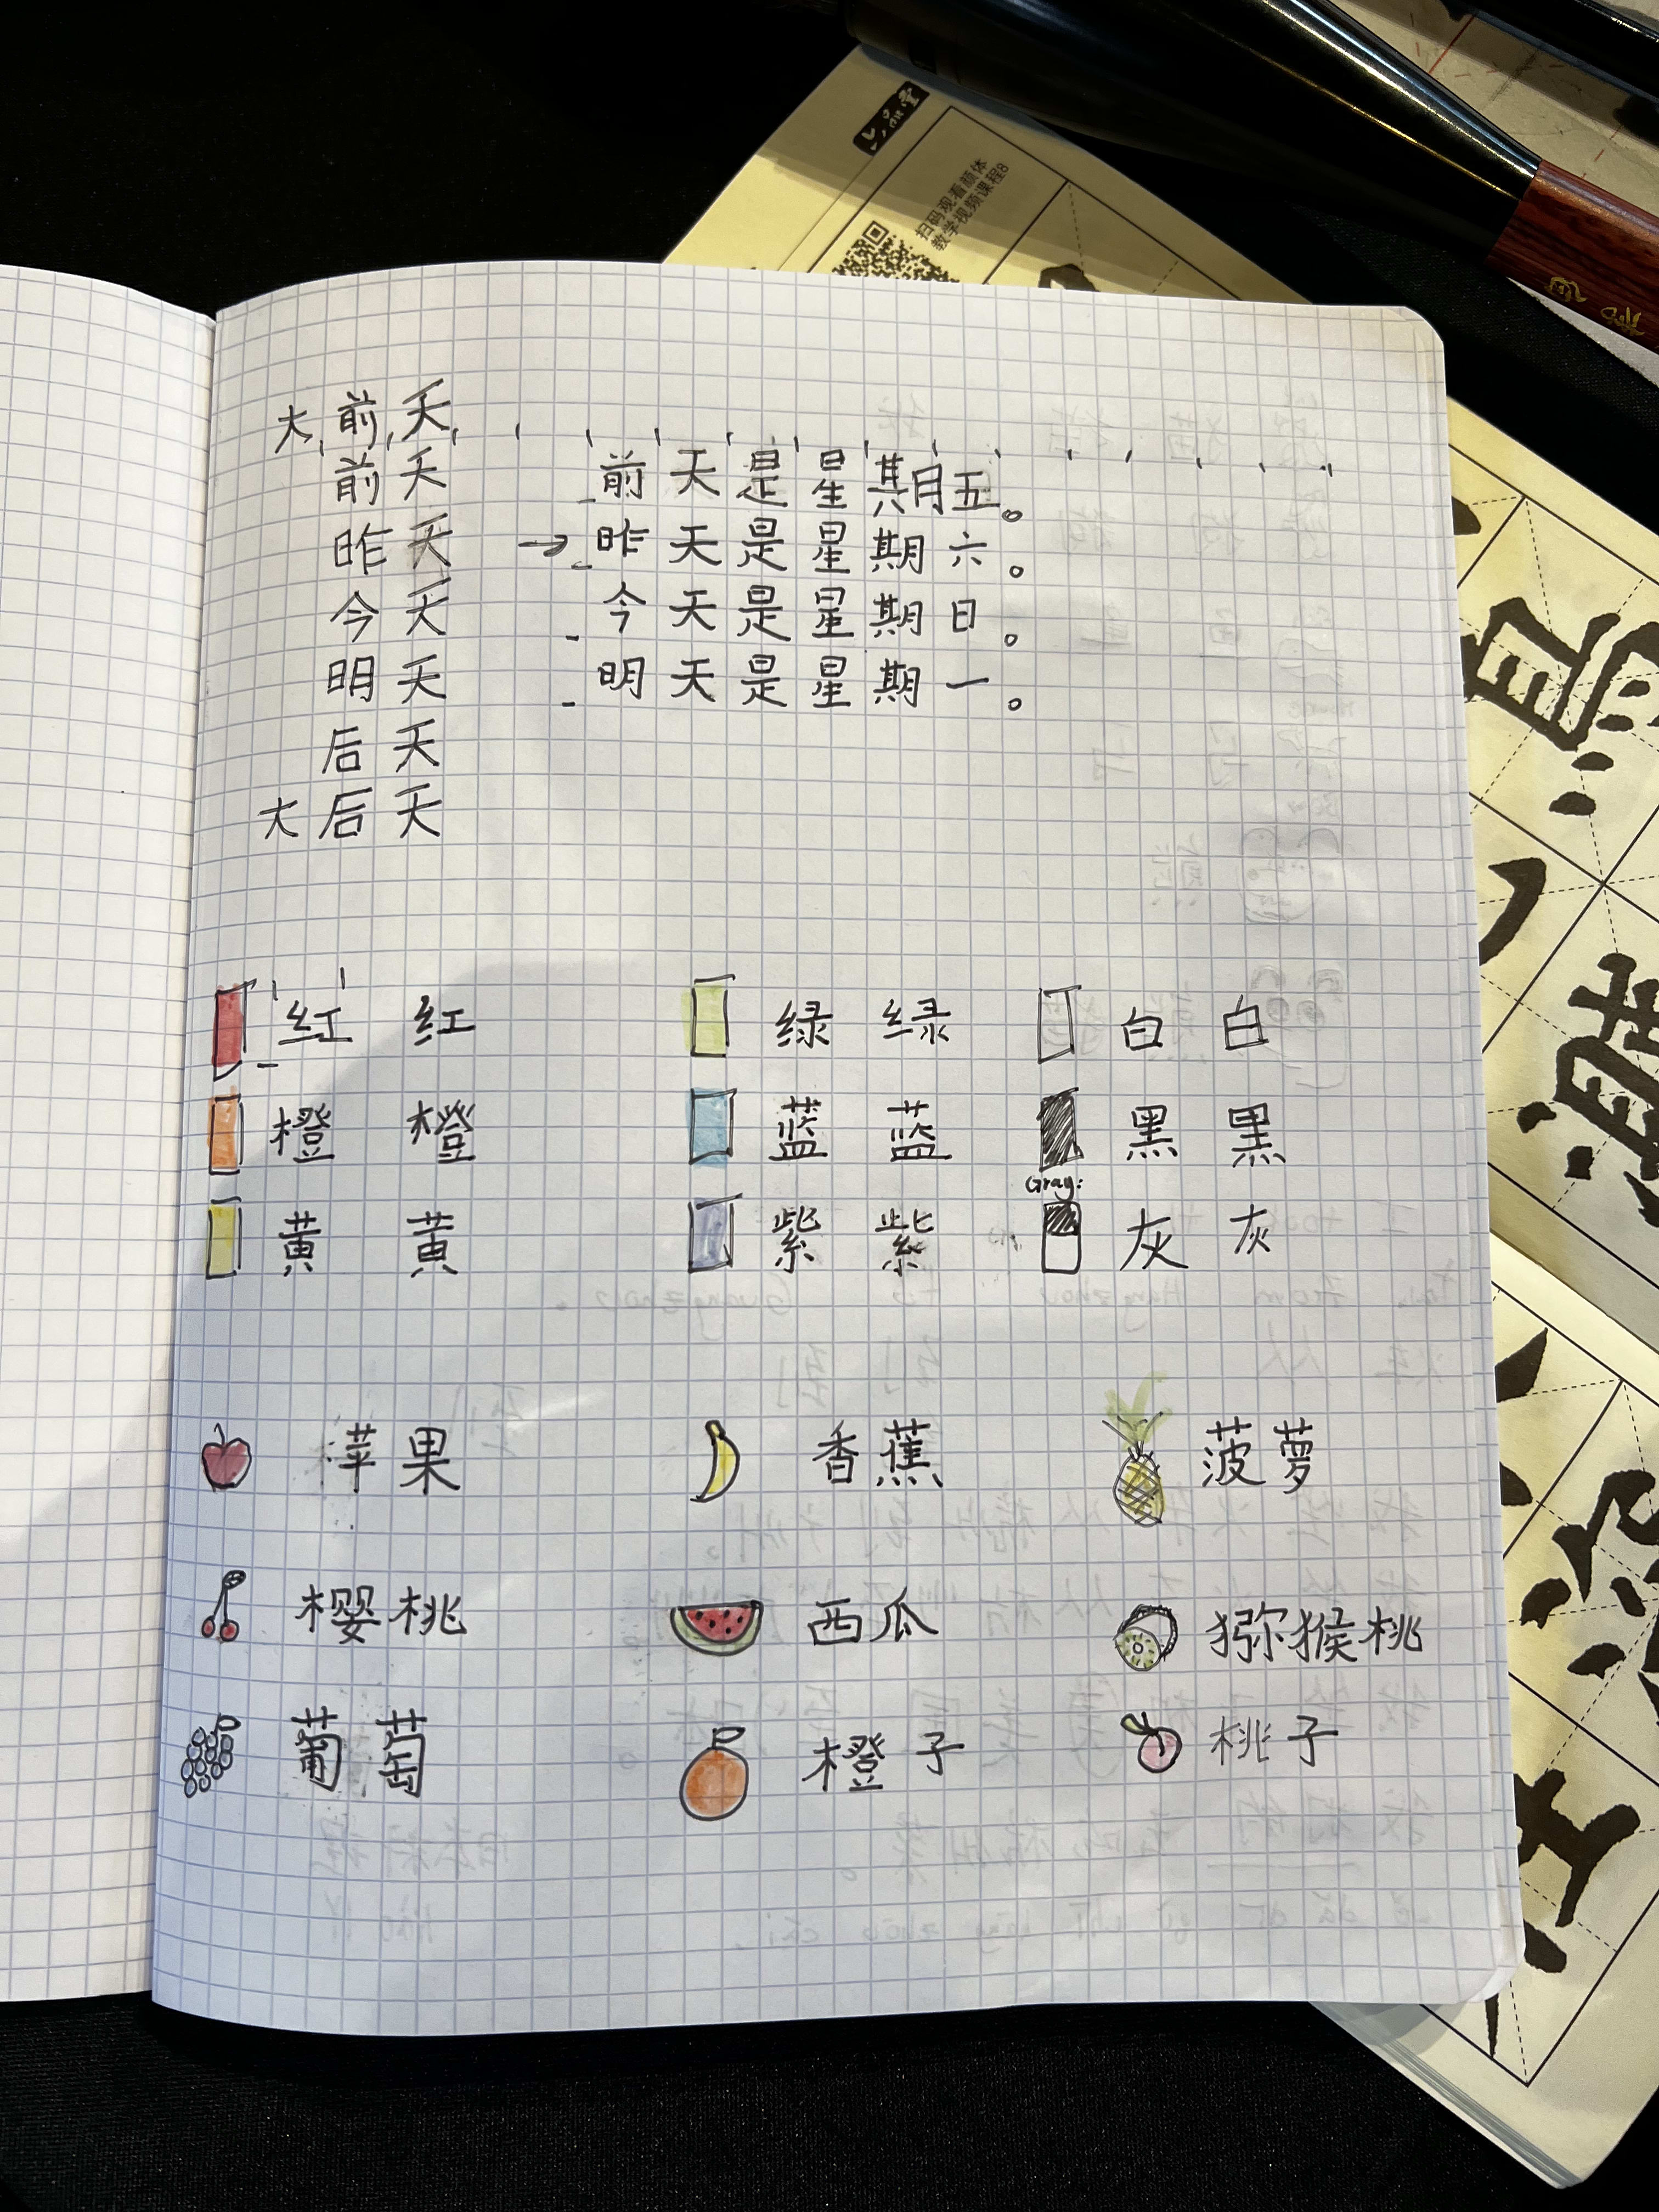 六品堂
扫码观看颜体
教学视频课程8
大前天
前天 前天是星期五。
昨天 → 昨天是星期六。
今天 今天是星期日。
明天 明天是星期一。
后天
大后天
红 红 绿 绿 白 白
橙 橙 蓝 蓝 黑 黑
Gray:
黄 黄 紫 紫 灰 灰
苹果 香蕉 菠萝
樱桃 西瓜 猕猴桃
葡萄 橙子 桃子